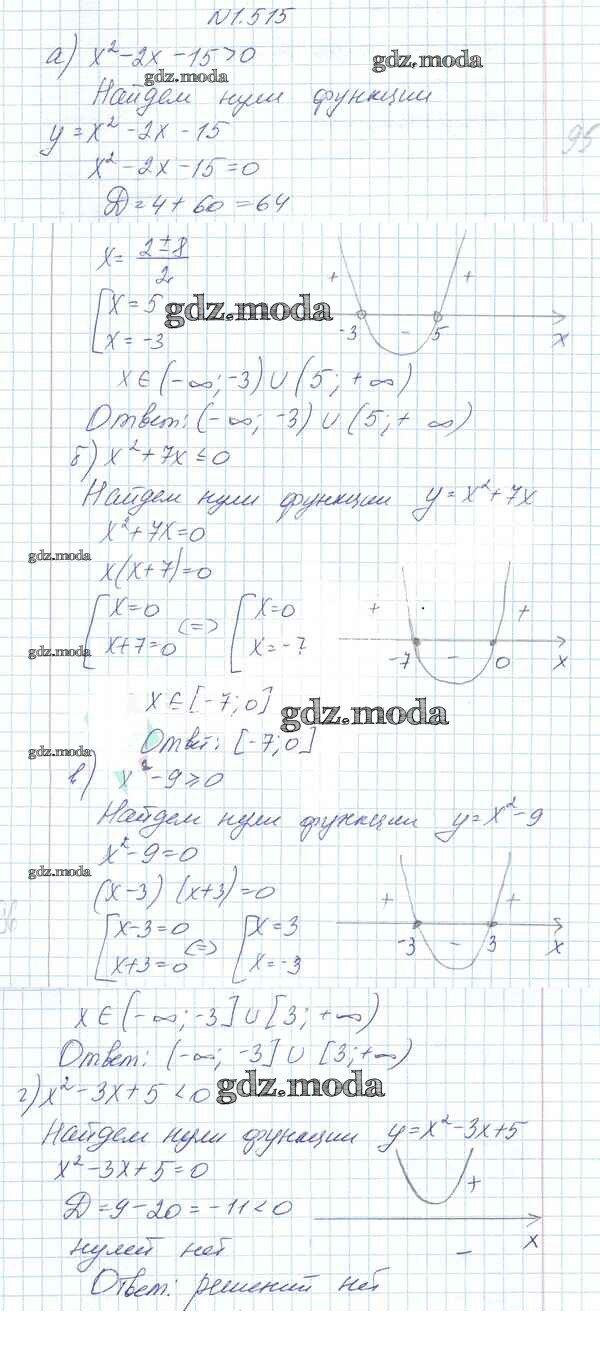 N1.515
а) x² - 2x - 15 > 0
gdz.moda
gdz.moda
Найдем нули функции
y = x² - 2x - 15
95
x² - 2x - 15 = 0
Д = 4 + 60 = 64
x = (2 ± 8)/2
[ x = 5
x = -3
gdz.moda
+ - +
-3 5 x
x ∈ (-∞; -3) ∪ (5; +∞)
Ответ: (-∞; -3) ∪ (5; + ∞)
б) x² + 7x ≤ 0
Найдем нули функции y = x² + 7x
x² + 7x = 0
gdz.moda
x(x + 7) = 0
[ x = 0 <=> [ x = 0
x + 7 = 0 x = -7
gdz.moda
+ - +
-7 0 x
x ∈ [-7; 0]
gdz.moda
Ответ: [-7; 0]
gdz.moda
в) x² - 9 ≥ 0
Найдем нули функции y = x² - 9
x² - 9 = 0
gdz.moda
(x - 3) (x + 3) = 0
[ x - 3 = 0 <=> [ x = 3
x + 3 = 0 x = -3
+ - +
-3 3 x
x ∈ (-∞; -3] ∪ [3; +∞)
Ответ: (-∞; -3] ∪ [3; +∞)
г) x² - 3x + 5 < 0
gdz.moda
Найдем нули функции y = x² - 3x + 5
x² - 3x + 5 = 0
Д = 9 - 20 = -11 < 0
+
x
-
нулей нет
Ответ: решений нет